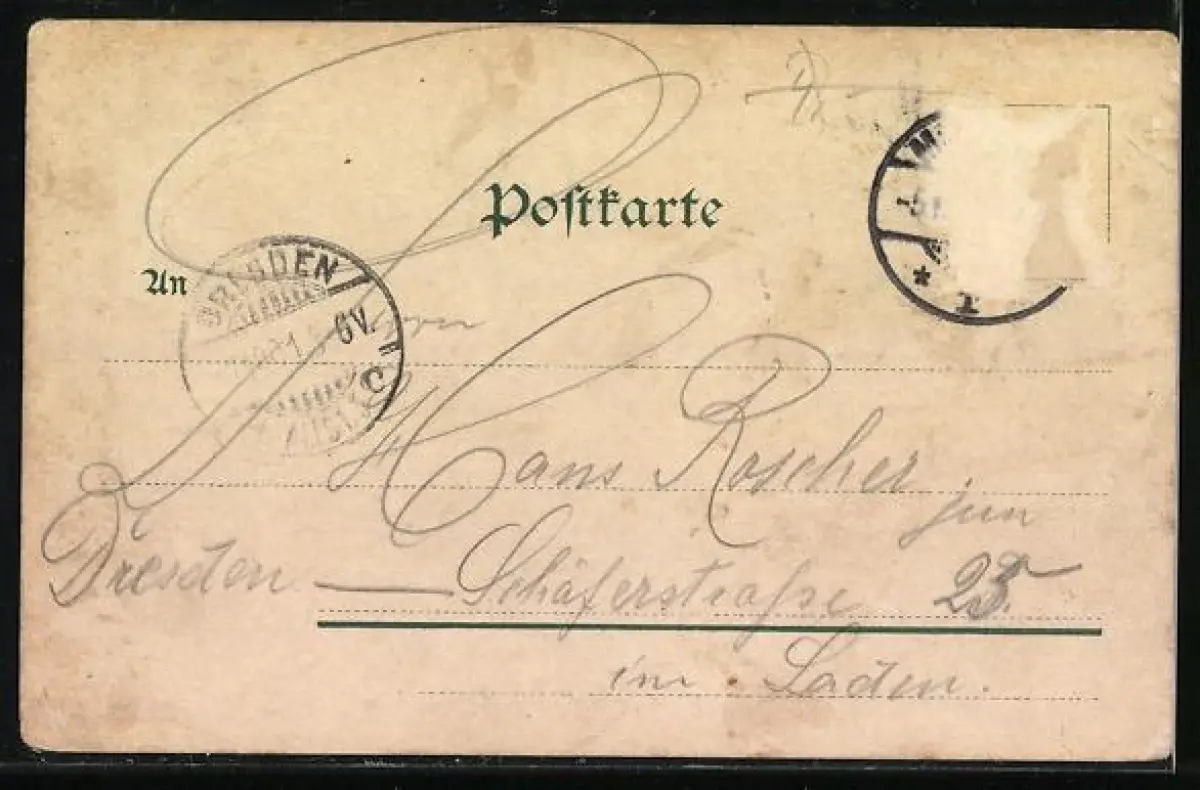 Postkarte
An
DRESDEN
6V.
Hans Roscher jun
Dresden — Schäferstraße
im Laden.